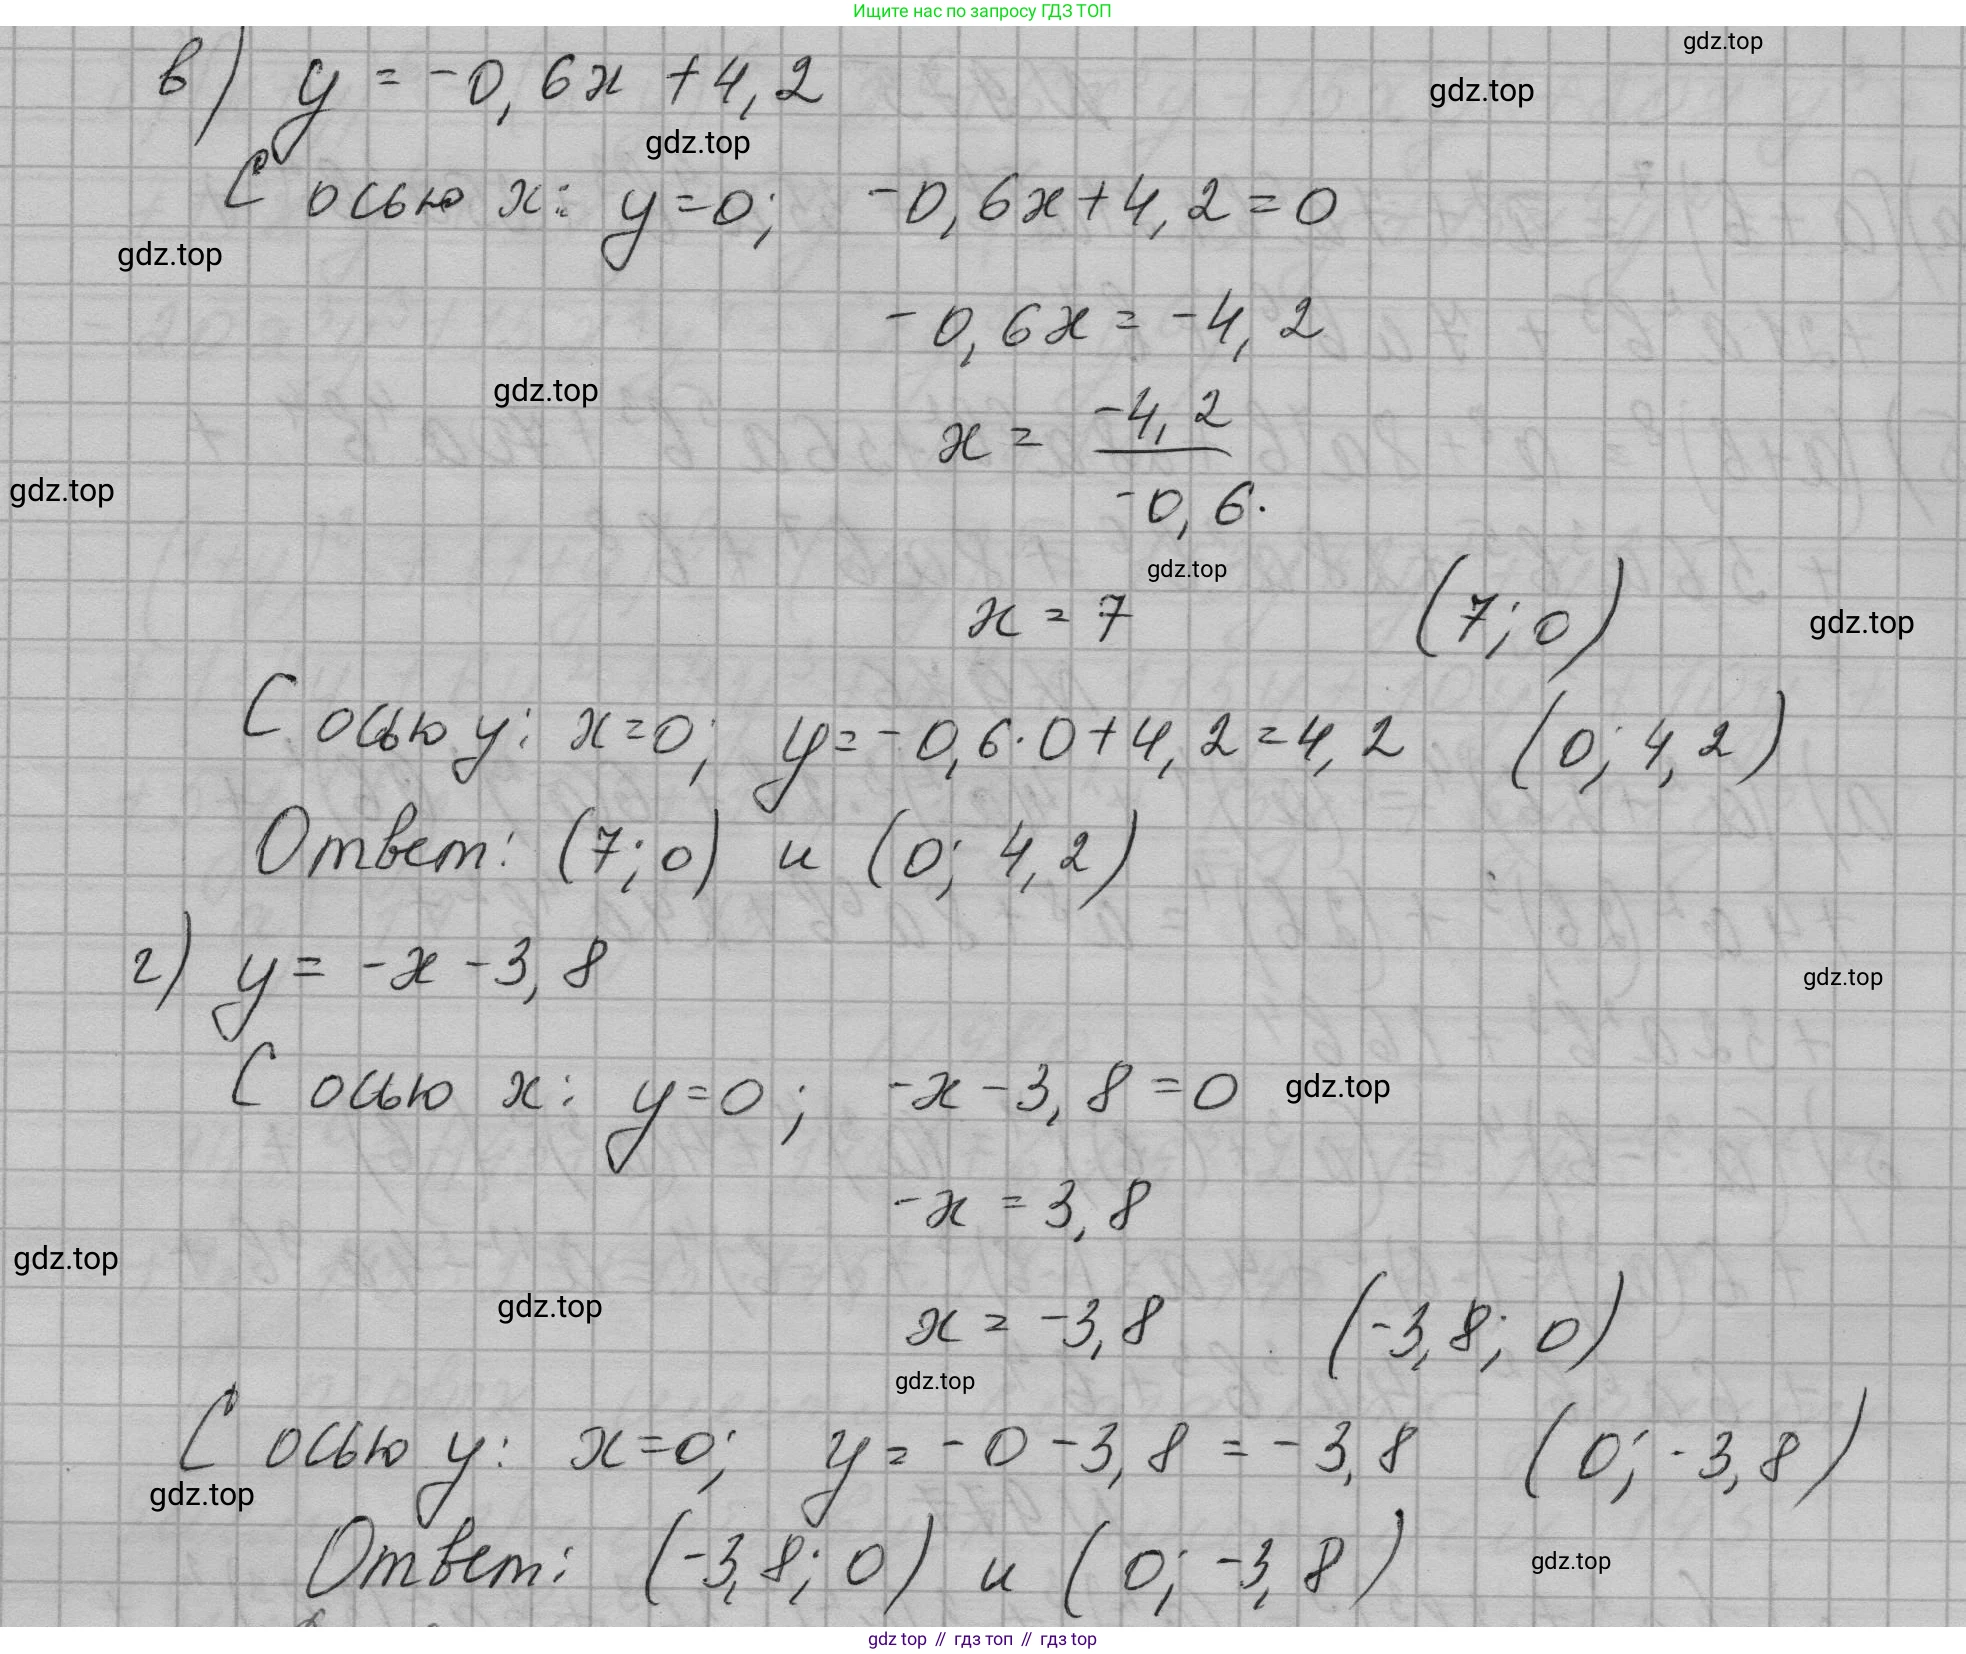 Ищите нас по запросу ГДЗ ТОП
gdz.top
в) y = -0,6x + 4,2
gdz.top
gdz.top
С осью x: y=0; -0,6x+4,2=0
gdz.top
-0,6x = -4,2
gdz.top
x = -4,2
-0,6.
gdz.top
gdz.top
x = 7 (7; 0)
gdz.top
С осью y: x=0; y=-0,6·0+4,2=4,2 (0; 4,2)
Ответ: (7; 0) и (0; 4,2)
г) y = -x - 3,8
gdz.top
С осью x: y=0; -x-3,8=0
gdz.top
-x = 3,8
gdz.top
gdz.top
x = -3,8 (-3,8; 0)
gdz.top
С осью y: x=0; y= -0-3,8 = -3,8 (0; -3,8)
gdz.top
Ответ: (-3,8; 0) и (0; -3,8)
gdz.top
gdz top // гдз топ // гдз top